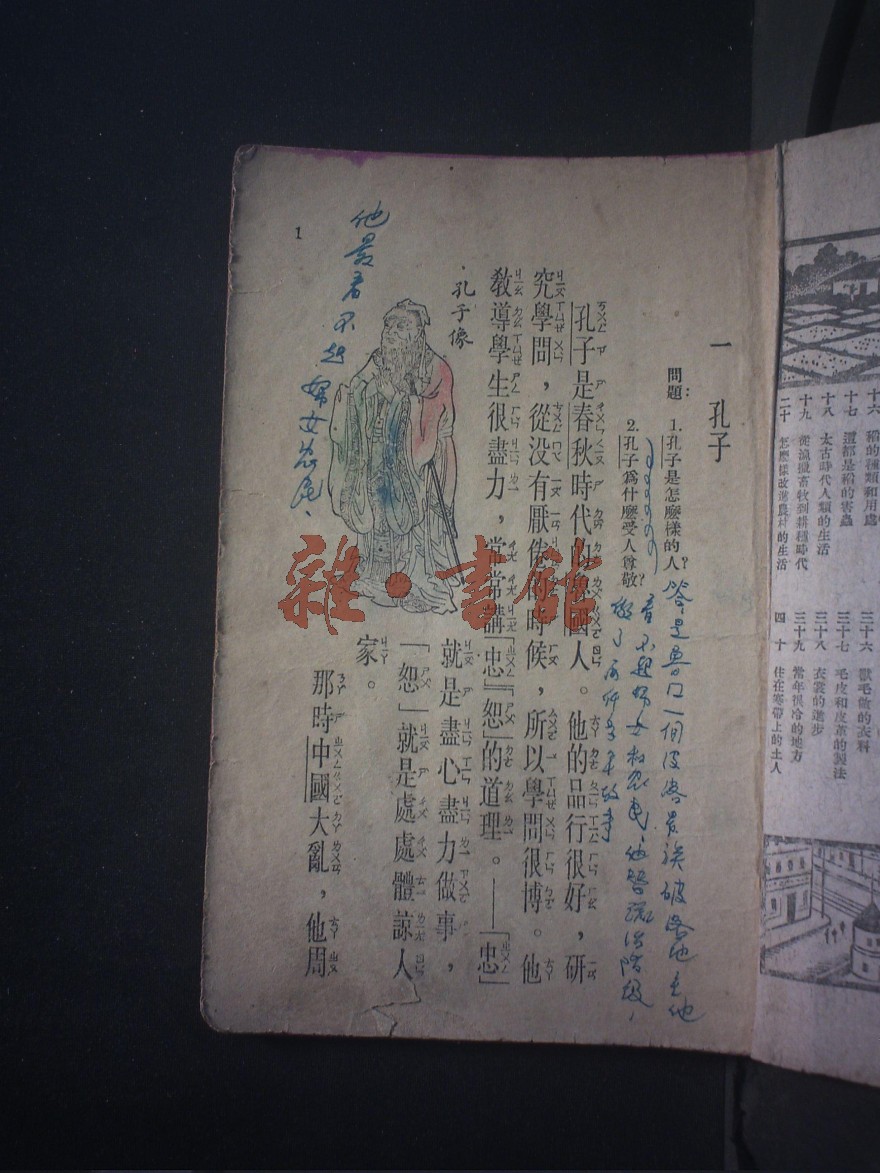 一 孔子
問題：1.孔子是怎麼樣的人？
2.孔子爲什麼受人尊敬？
孔子是春秋時代的魯國人。他的品行很好，研
究學問，從没有厭倦的時候，所以學問很博。他
教導學生很盡力，常常講「忠」「恕」的道理。——「忠」
就是盡心盡力做事，
「恕」就是處處體諒人
家。
那時中國大亂，他周
孔子像
1
答：是魯囗一個没落貴族破落地主他
看不起婦女和農民，他替統治階級，
做了
他最看不起婦女农民、
雜·書館
十六 稻的種類和用處
十七 還都是稻的害蟲
十八 太古時代人類的生活
十九 從漁獵畜牧到耕種時代
二十 怎麼樣改進農村的生活
三十六 獸毛做的衣料
三十七 毛皮和皮革的製法
三十八 衣裳的進步
三十九 常年很冷的地方
四十 住在寒帶上的土人